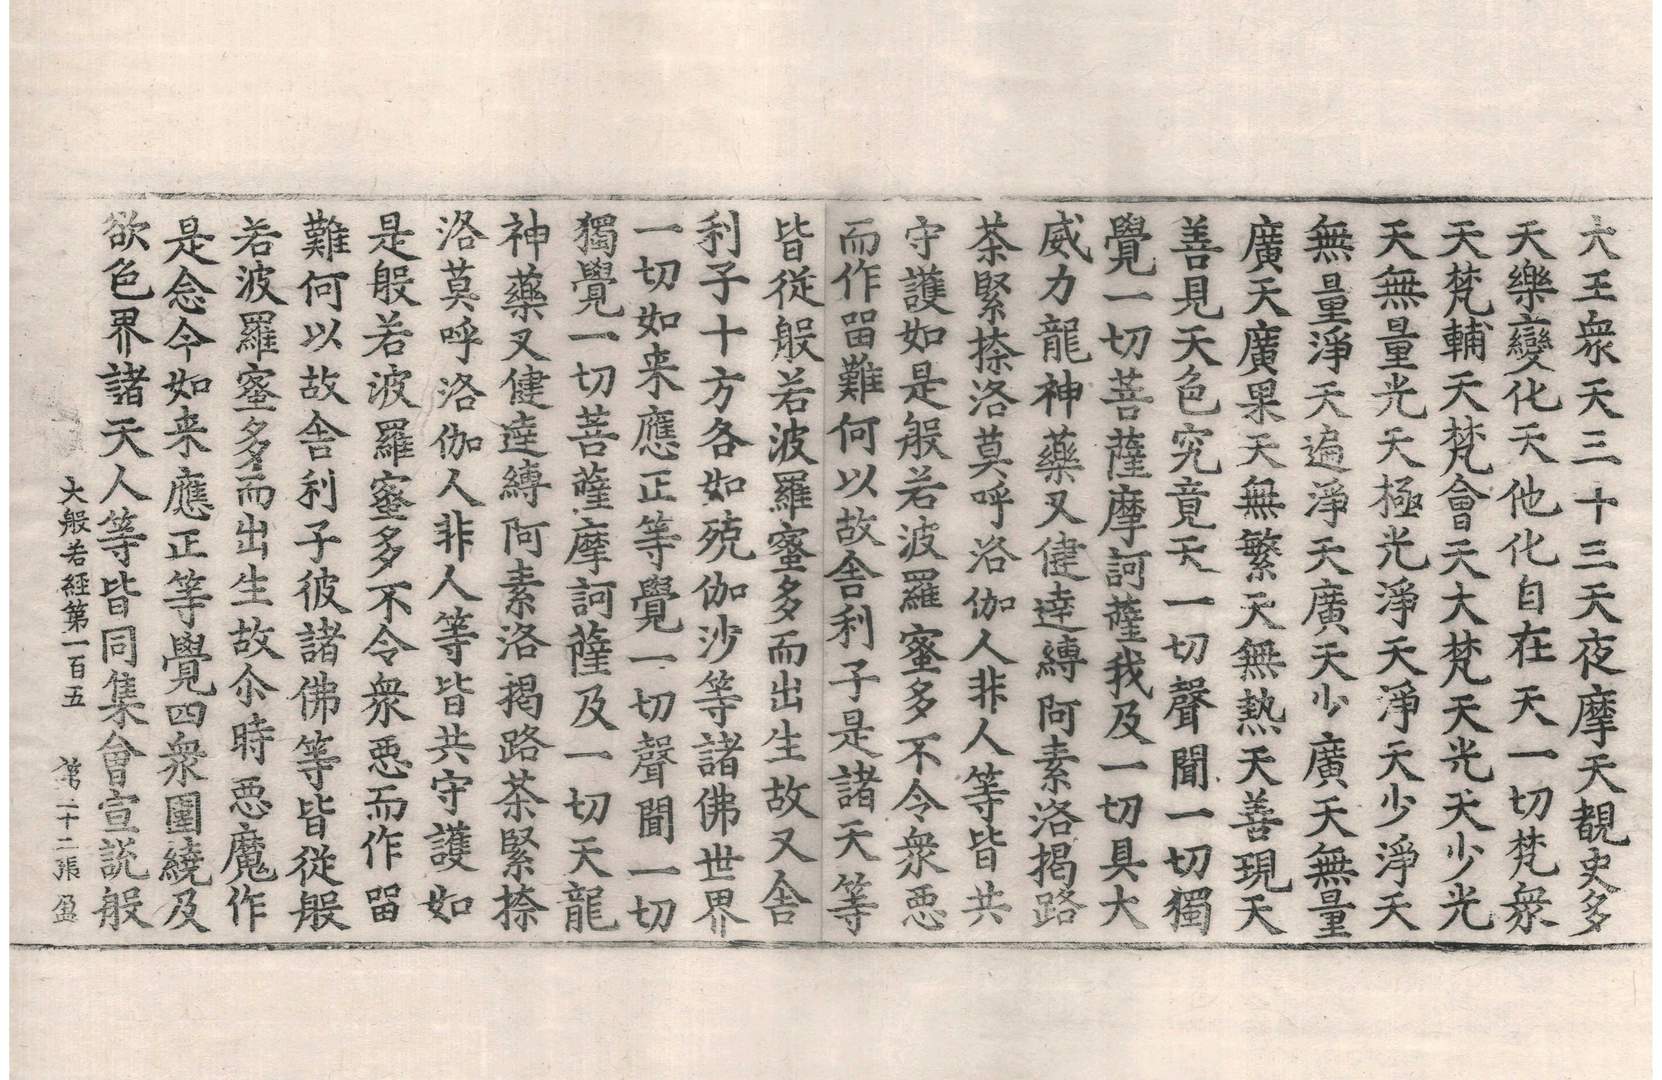 大王衆天三十三天夜摩天覩史多
天樂變化天他化自在天一切梵衆
天梵輔天梵會天大梵天光天少光
天無量光天極光淨天淨天少淨天
無量淨天遍淨天廣天少廣天無量
廣天廣果天無繁天無熱天善現天
善見天色究竟天一切聲聞一切獨
覺一切菩薩摩訶薩我及一切具大
威力龍神藥叉健達縛阿素洛揭路
茶緊捺洛莫呼洛伽人非人等皆共
守護如是般若波羅蜜多不令衆惡
而作留難何以故舍利子是諸天等
皆從般若波羅蜜多而出生故又舍
利子十方各如殑伽沙等諸佛世界
一切如来應正等覺一切聲聞一切
獨覺一切菩薩摩訶薩及一切天龍
神藥叉健達縛阿素洛揭路茶緊捺
洛莫呼洛伽人非人等皆共守護如
是般若波羅蜜多不令衆惡而作留
難何以故舍利子彼諸佛等皆從般
若波羅蜜多而出生故尒時惡魔作
是念今如来應正等覺四衆圍繞及
欲色界諸天人等皆同集會宣説般
大般若經第一百五 第二十二張 盈